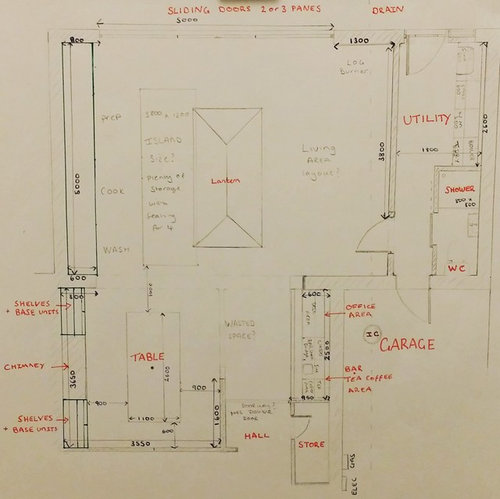 SLIDING DOORS 2 or 3 PANES
DRAIN
5000
800
1300
LOG
Burner
PREP
3800 x 1200
ISLAND
Size?
• Plenty of
Storage
with
Seating
for 4
COOK
WASH
5000
600
Lantern
Living
AREA
layout?
3800
UTILITY
1800
2600
SHOWER
800 x
800
WC
1000
SHELVES
+ BASE UNITS
CHIMNEY
3650
SHELVES
+ BASE UNITS
TABLE
2400
900
1100
900
3550
WASTED
SPACE?
1600
HALL
600
2500
OFFICE
AREA
BAR
+
TEA COFFEE
AREA
STORE
IC
GARAGE
GAS
ELEC